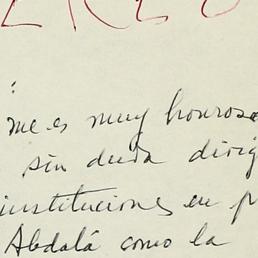 me es muy honroso
sin duda dirig
instituciones en p
Abdalá como la